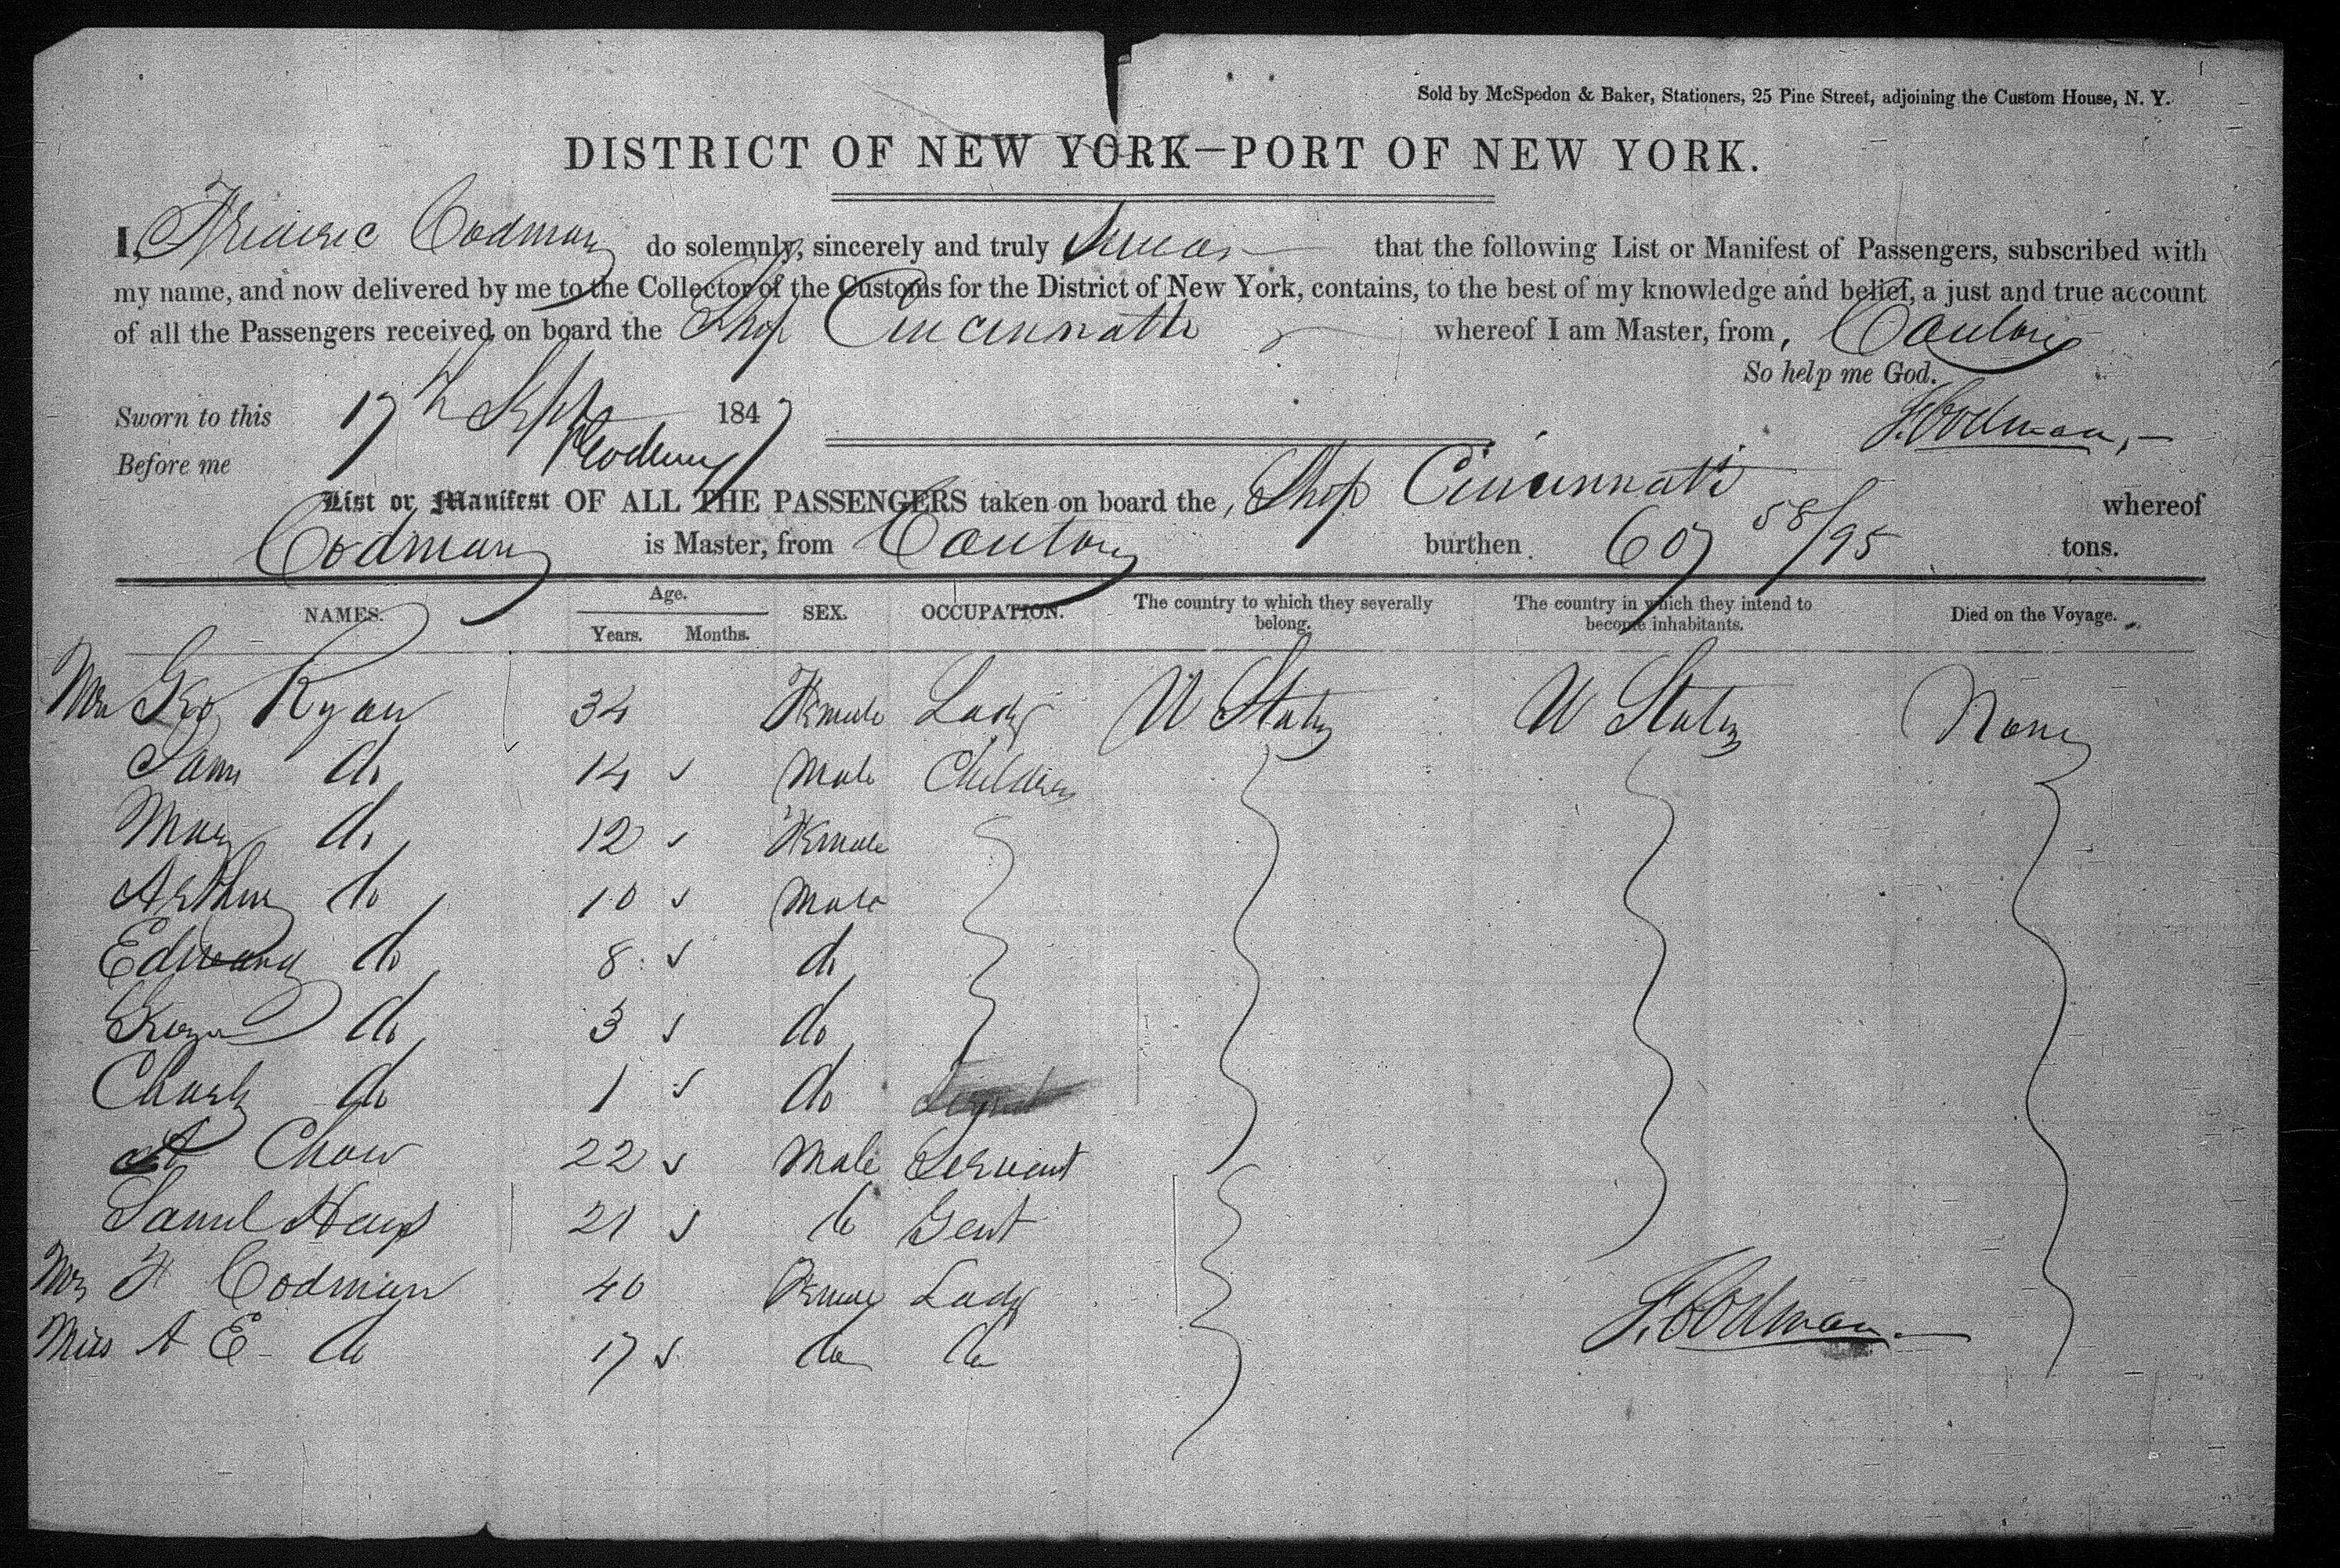 Sold by McSpedon & Baker, Stationers, 25 Pine Street, adjoining the Custom House, N. Y.
DISTRICT OF NEW YORK—PORT OF NEW YORK.
I, Frederic Codman do solemnly, sincerely and truly swear that the following List or Manifest of Passengers, subscribed with
my name, and now delivered by me to the Collector of the Customs for the District of New York, contains, to the best of my knowledge and belief, a just and true account
of all the Passengers received on board the Ship Cincinnatti whereof I am Master, from, Canton
So help me God.
Sworn to this 17th Sept 1847 F. Codman,
Before me
List or Manifest OF ALL THE PASSENGERS taken on board the, Ship Cincinnati whereof
Codman is Master, from Canton burthen 607 58/95 tons.
NAMES. Age. Years. Months. SEX. OCCUPATION. The country to which they severally belong. The country in which they intend to become inhabitants. Died on the Voyage.
Mrs Geo Ryan 34 Female Lady U States U States None
Sam do 14 Male Children
Mary do 12 Female
Arthur do 10 Male
Edward do 8 do
do 3 do
Charls do 1 do
A Chow 22 Male Servant
Samuel Hays 21 do Gent
Mrs F Codman 40 Female Lady
Miss A E do 17 do do
F. Codman